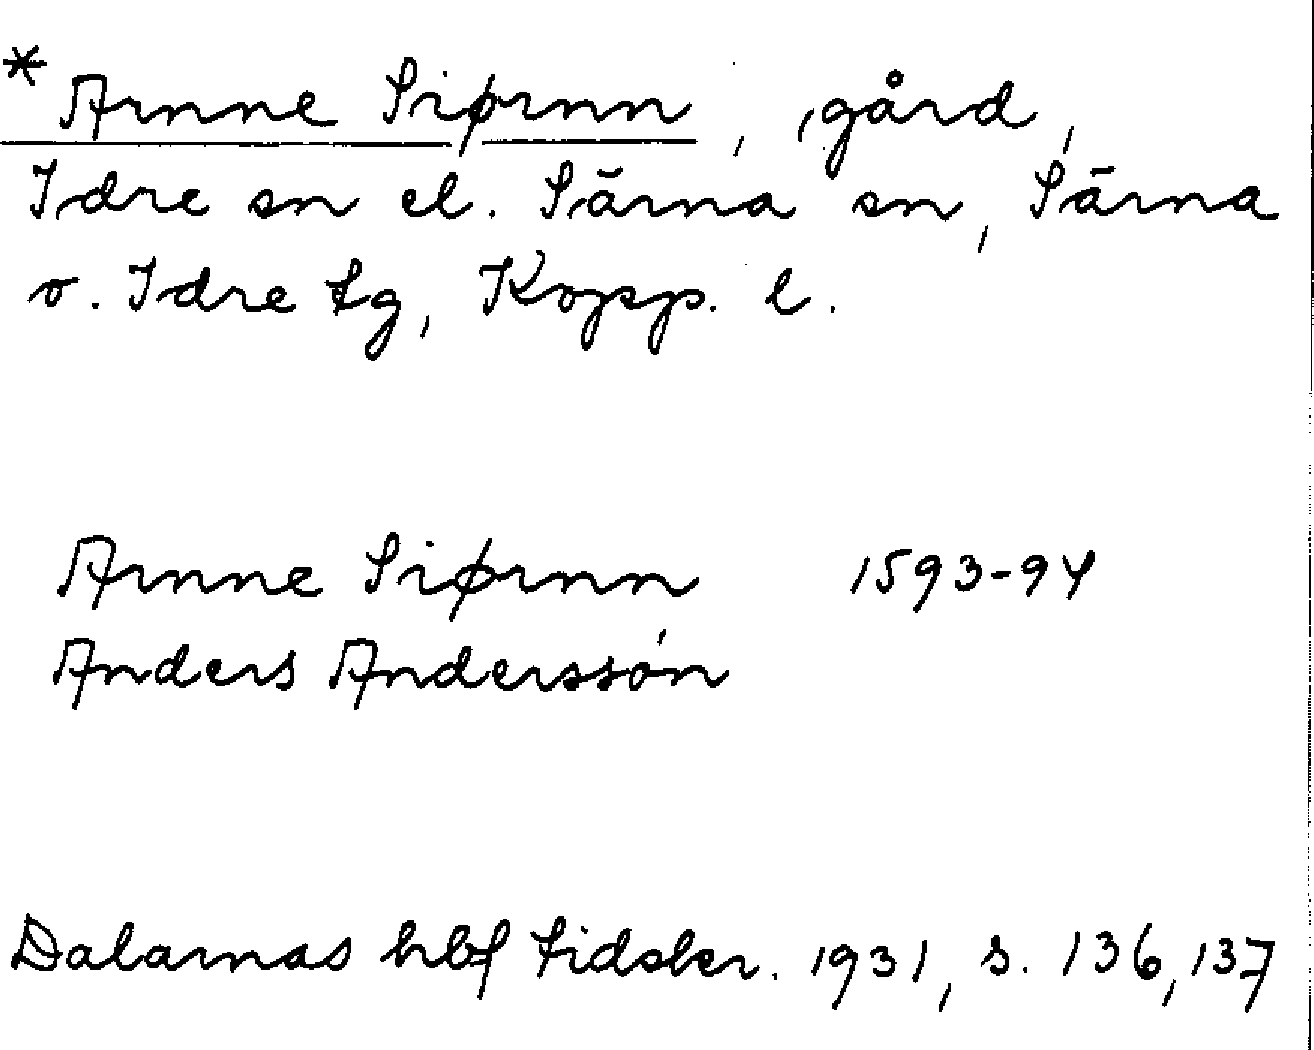 * Arnne Siørnn, gård,
Idre sn el. Särna sn, Särna
o. Idre tg, Kopp. l.
Arnne Siørnn 1593-94
Anders Anderssón
Dalarnas hbf tidskr. 1931, s. 136, 137